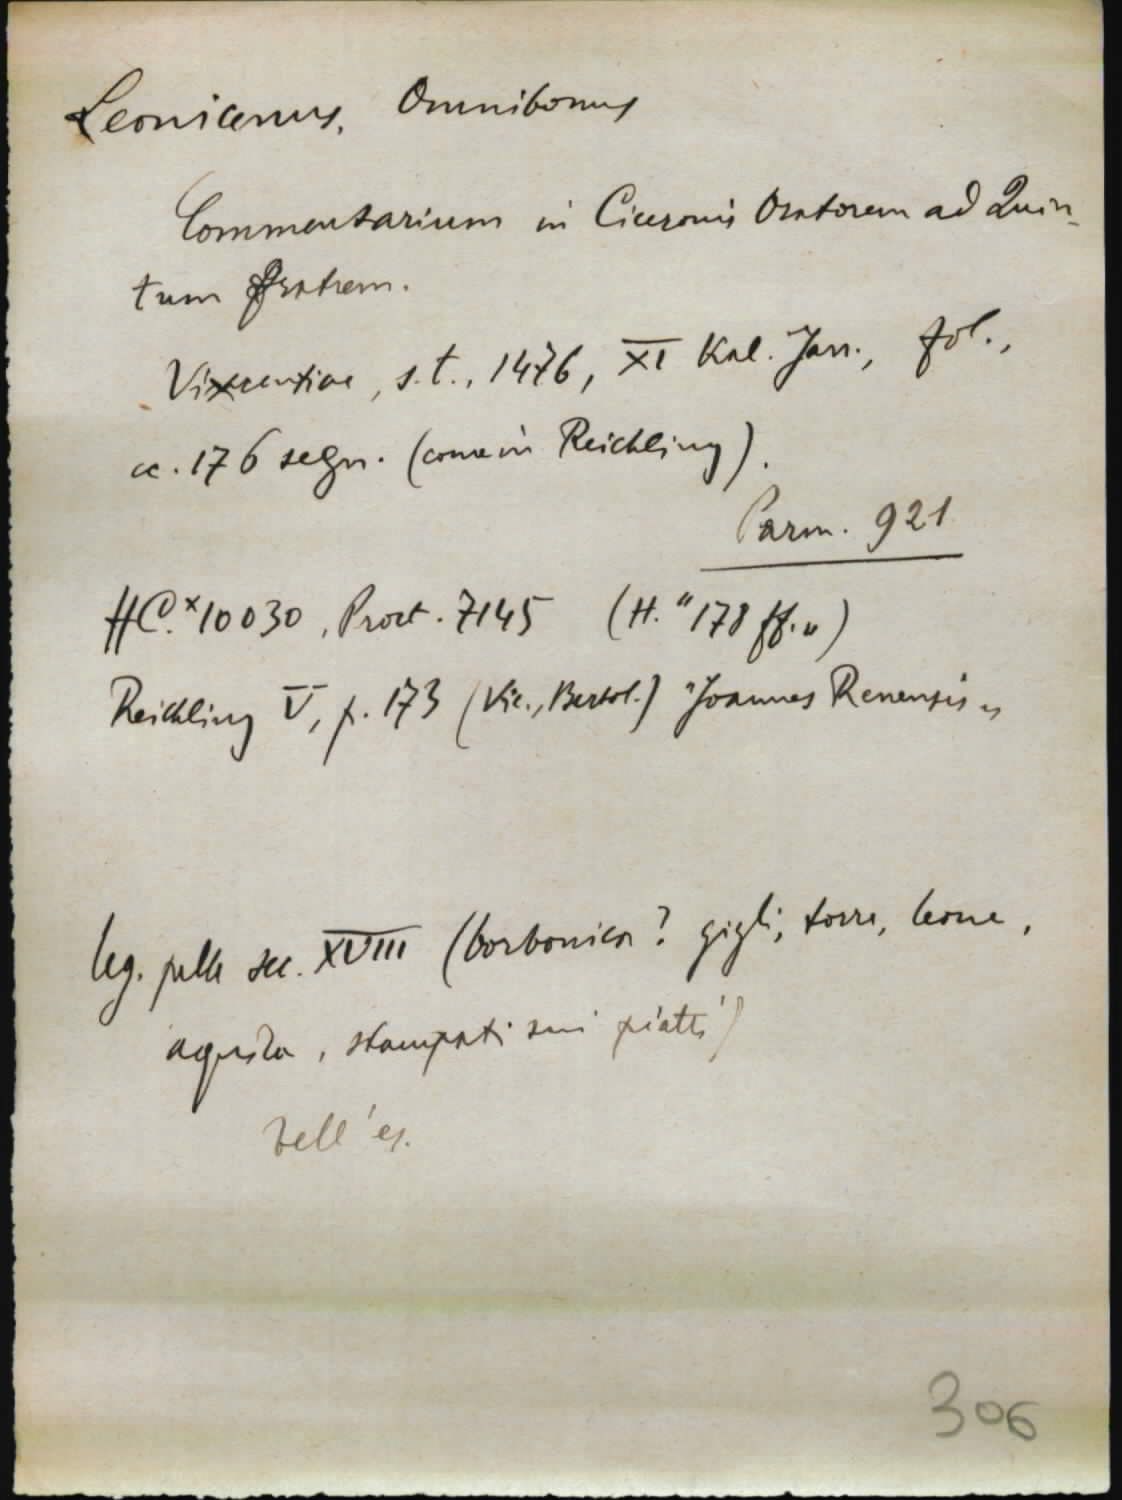 Leonicenus, Omnibonus
Commentarium in Ciceronis Oratorem ad Quin-
tum fratrem.
Vixcentiae, s.t., 1476, XI Kal. Jan., fol.,
cc. 176 segn. (come in Reichling).
Parm. 921
HC.*10030, Proct. 7145 (H. "178 ff.")
Reichling V, p. 173 (Vic., Bertol.) "Joannes Renensis"
leg. pelle sec. XVIII (borbonica? gigli, torre, leone,
aquila, stampati sui piatti)
bell'es.
306